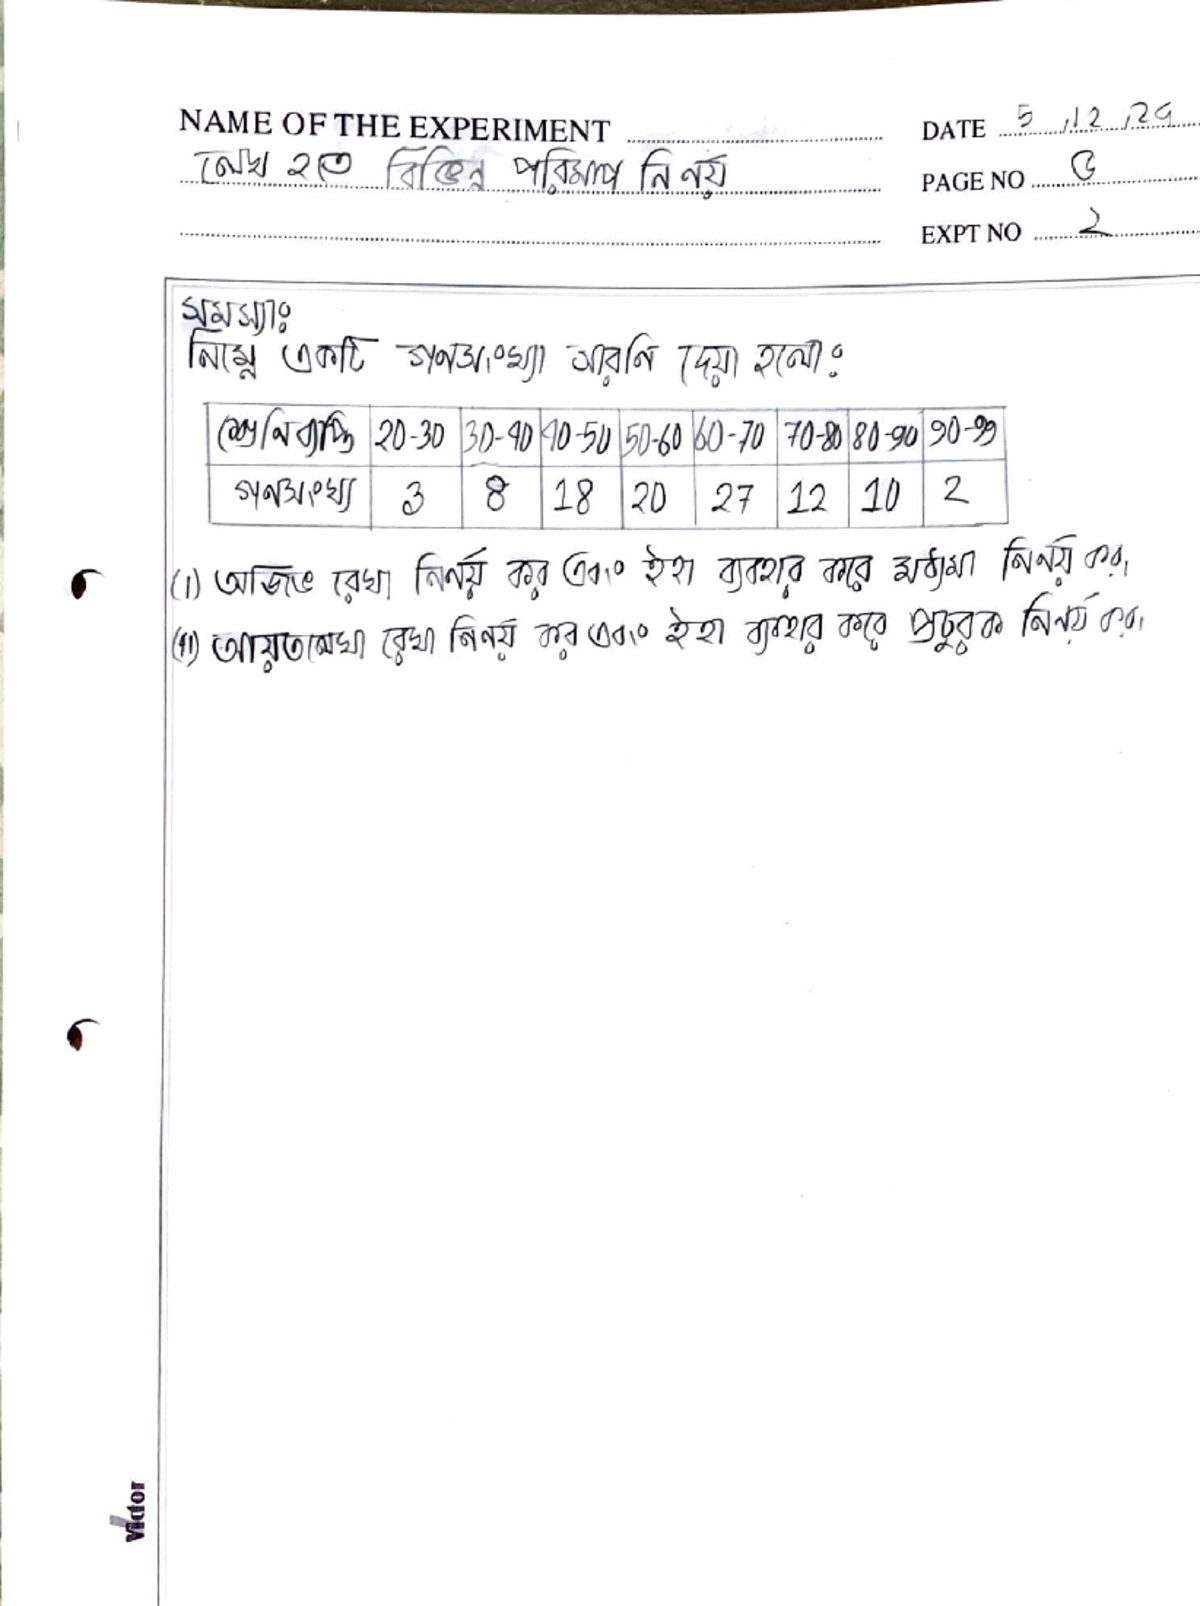 NAME OF THE EXPERIMENT
লেখ হতে বিভিন্ন পরিমাপ নির্নয়
DATE 5.12.24
PAGE NO ৫
EXPT NO ২
সমস্যাঃ
নিম্নে একটি গনসংখ্যা সারনি দেয়া হলোঃ
শ্রেনিব্যাপ্তি 20-30 30-40 40-50 50-60 60-70 70-80 80-90 90-99
গনসংখ্যা 3 8 18 20 27 12 10 2
(i) অজিভ রেখা নির্নয় কর এবং ইহা ব্যবহার করে মধ্যমা নির্নয় কর।
(ii) আয়তলেখা রেখা নির্নয় কর এবং ইহা ব্যবহার করে প্রচুরক নির্নয় কর।
Victor